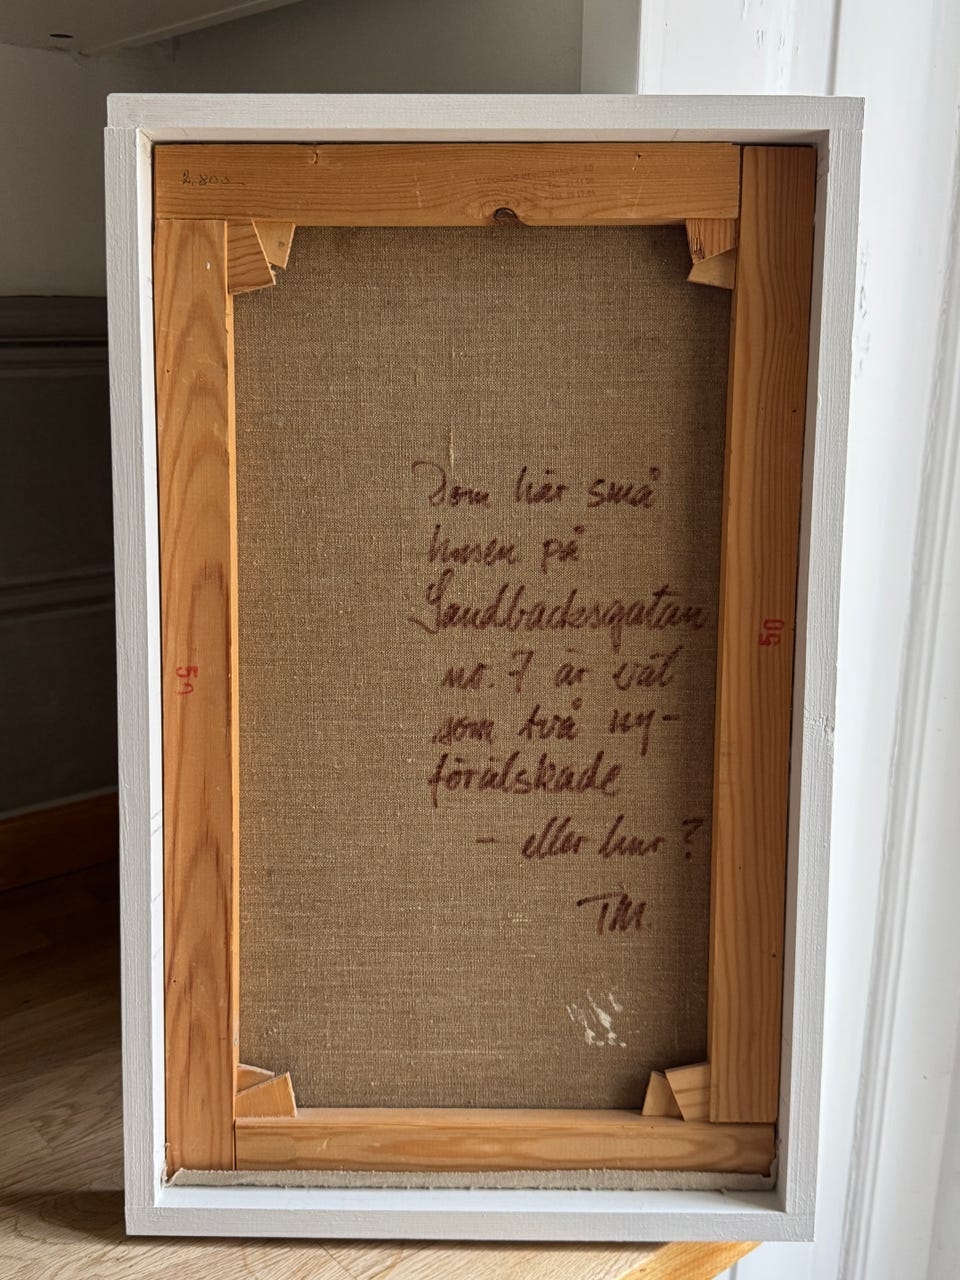 2.800
Dom här små
husen på
Sandbacksgatan
no. 7 är väl
som två ny-
förälskade
- eller hur?
TM.
50
50